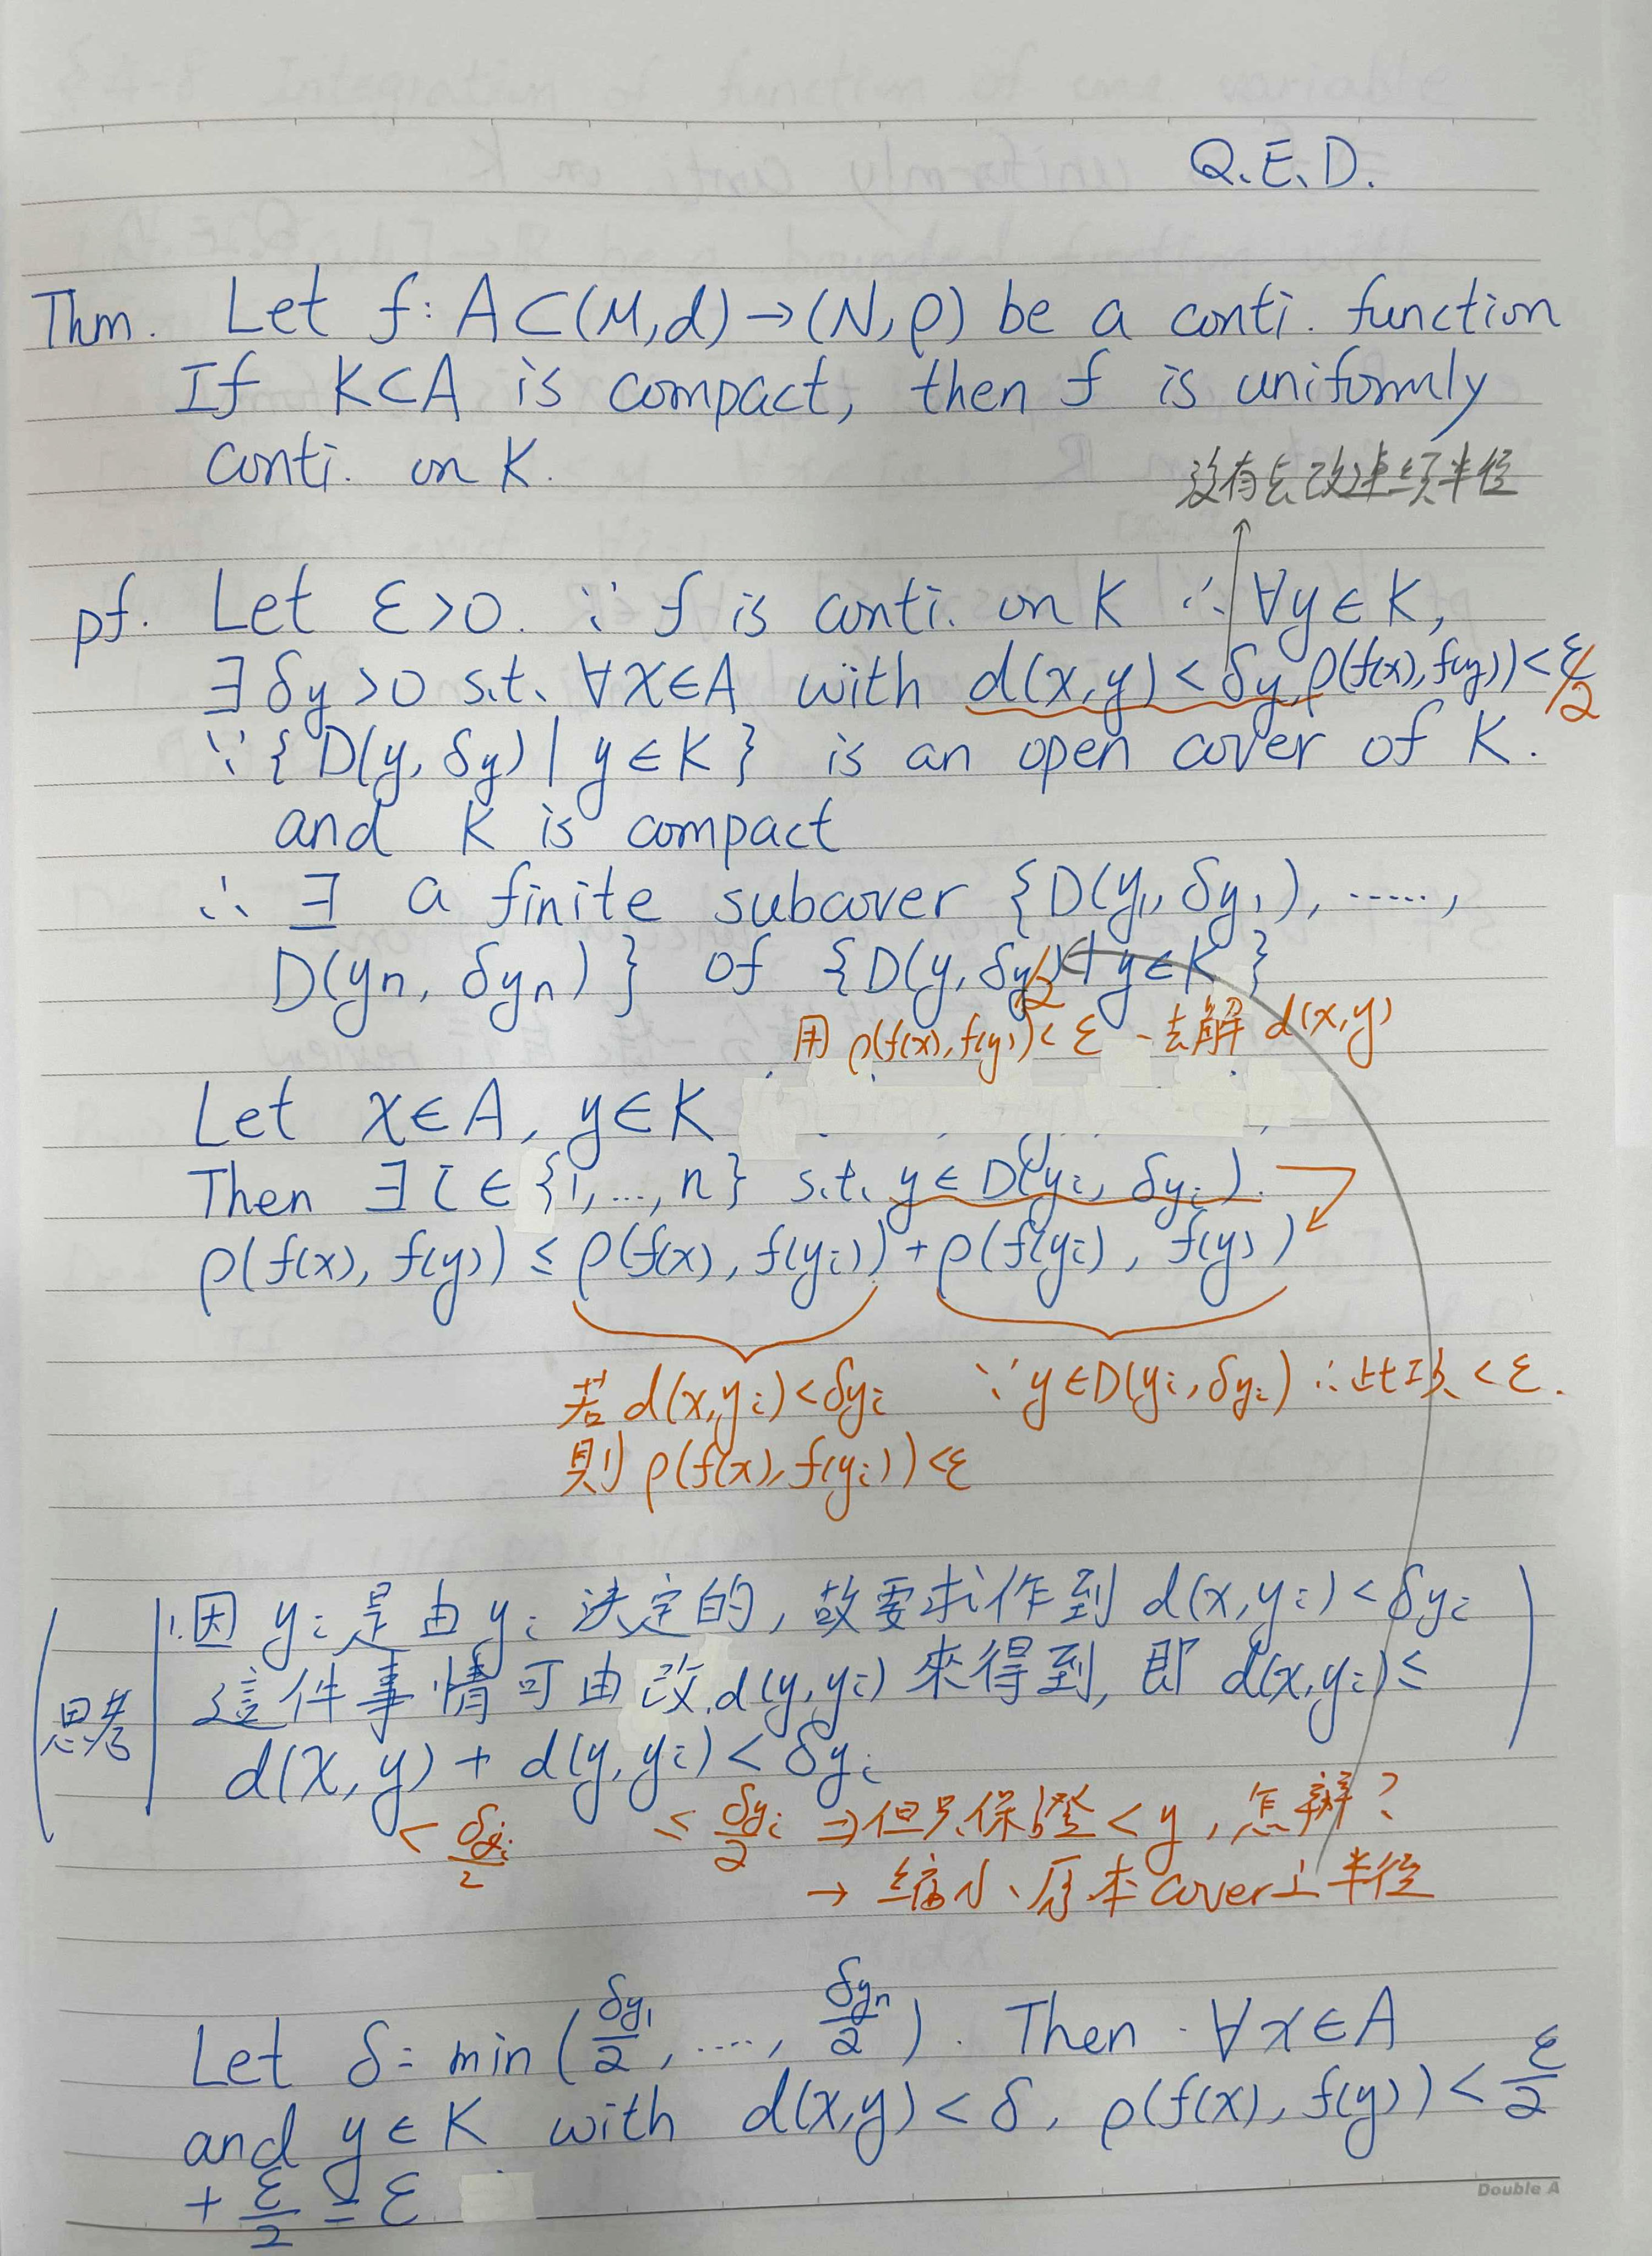 Q.E.D.
Thm. Let f: A⊂(M,d)→(N,ρ) be a conti. function
If K⊂A is compact, then f is uniformly
conti. on K.
沒有去改連續半徑
pf. Let ε>0. ∵ f is conti. on K ∴ ∀y∈K,
∃ δy>0 s.t. ∀x∈A with d(x,y)<δy, ρ(f(x),f(y))<ε/2
∵ {D(y,δy) | y∈K} is an open cover of K.
and K is compact
∴ ∃ a finite subcover {D(y₁,δy₁), ……,
D(yn, δyn)} of {D(y,δy/2) | y∈K}
用 ρ(f(x),f(y))<ε 去解 d(x,y)
Let x∈A, y∈K
Then ∃ i∈{1,…,n} s.t. y∈D(yi, δyi).
ρ(f(x), f(y)) ≤ ρ(f(x), f(yi)) + ρ(f(yi), f(y))
若 d(x,yi)<δyi ∵ y∈D(yi,δyi) ∴此項<ε.
則 ρ(f(x),f(yi))<ε
思考
1.因 yi 是由 yi 決定的, 故要求作到 d(x,yi)<δyi
這件事情可由改 d(y,yi) 來得到, 即 d(x,yi)≤
d(x,y) + d(y,yi) < δyi
< δyi/2 ≤ δyi/2 ⇒但只保證<y, 怎辦?
→ 縮小原本cover上半徑
Let δ= min(δy₁/2, ……, δyn/2). Then ∀x∈A
and y∈K with d(x,y)<δ, ρ(f(x), f(y)) < ε/2
+ ε/2 = ε
Double A